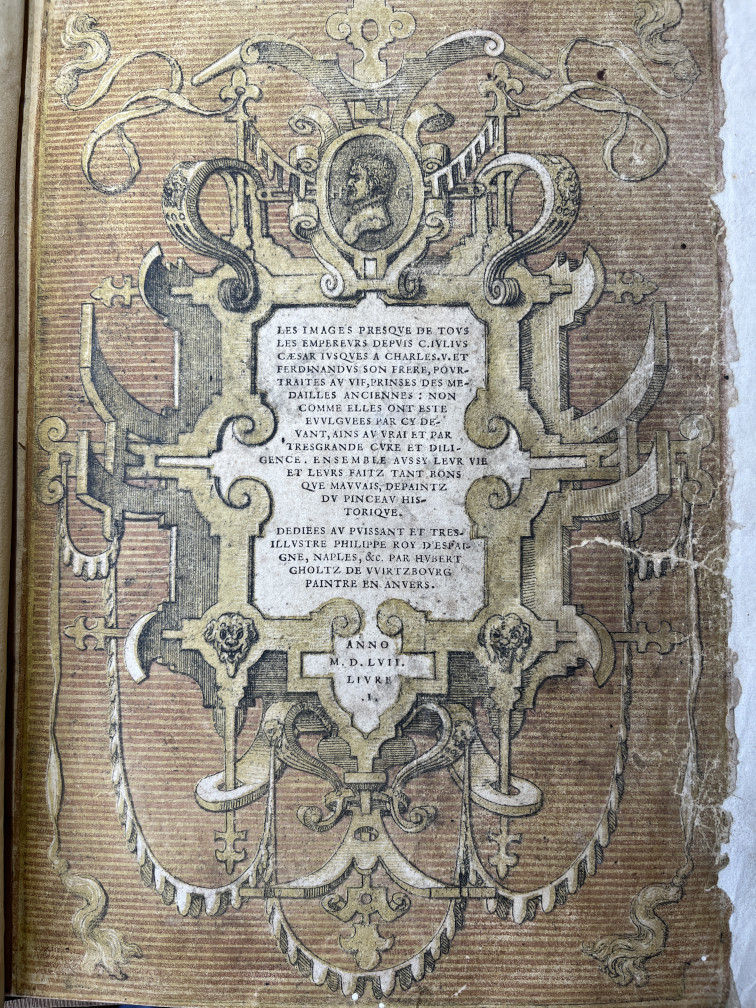 H G
LES IMAGES PRESQVE DE TOVS
LES EMPEREVRS DEPVIS C.IVLIVS
CÆSAR IVSQVES A CHARLES.V.ET
FERDINANDVS SON FRERE, POVR-
TRAITES AV VIF,PRINSES DES ME-
DAILLES ANCIENNES : NON
COMME ELLES ONT ESTE
EVVLGVEES PAR CY DE-
VANT, AINS AV VRAI ET PAR
TRESGRANDE CVRE ET DILI-
GENCE. ENSEMBLE AVSSY LEVR VIE
ET LEVRS FAITZ TANT BONS
QVE MAVVAIS, DEPAINTZ
DV PINCEAV HIS-
TORIQVE.
DEDIEES AV PVISSANT ET TRES-
ILLVSTRE PHILIPPE ROY D'ESPAI-
GNE, NAPLES, &C. PAR HVBERT
GHOLTZ DE VVIRTZBOVRG
PAINTRE EN ANVERS.
ANNO
M. D. LVII.
LIVRE
.I.